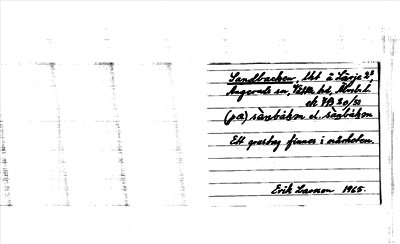 Sandbacken, lht å Lärje 2³,
Angereds sn, Vättle hd, Älvsb. l.
ek 7B 20/50
(pa) sànbákɐn el. sànbákɐn
Ett grustag finnes i närheten.
Erik Larsson 1965.